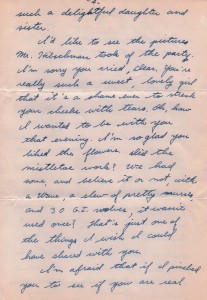 2.
such a delightful daughter and
sister.
I'd like to see the pictures
Mr. Hirschman took of the party.
I'm sorry you cried, dear, you're
really such a sweet, lovely girl
that it's a shame even to streak
your cheeks with tears. Oh, how
I wanted to be with you
that evening. I'm so glad you
liked the flowers. Did the
mistletoe work? We had
some, and believe it or not, with
a Wave, a slew of pretty nurses,
and 30 GI wolves, it wasn't
used once! That's just one of
the things I wish I could
have shared with you.
I'm afraid that if I pinched
you to see if you are real